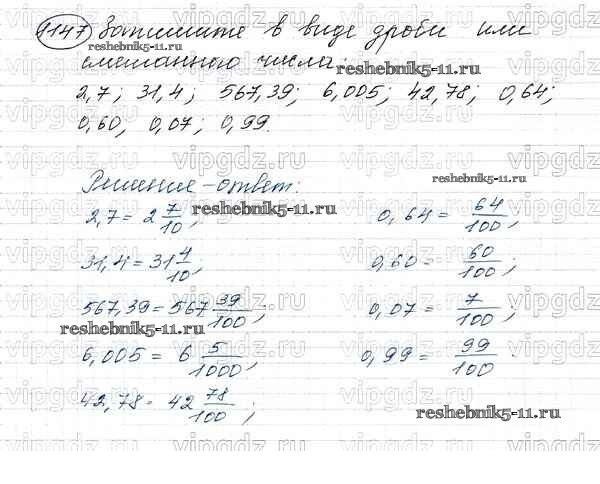 1147 Запишите в виде дроби или
reshebnik5-11.ru
смешанного числа:
reshebnik5-11.ru
2,7; 31,4; 567,39; 6,005; 42,78; 0,64;
0,60, 0,07; 0,99.
reshebnik5-11.ru
Решение-ответ:
2,7 = 2 7/10; reshebnik5-11.ru 0,64 = 64/100;
31,4 = 31 4/10; 0,60 = 60/100;
567,39 = 567 39/100; 0,07 = 7/100;
reshebnik5-11.ru
6,005 = 6 5/1000; 0,99 = 99/100.
42,78 = 42 78/100;
reshebnik5-11.ru
vipgdz.ru